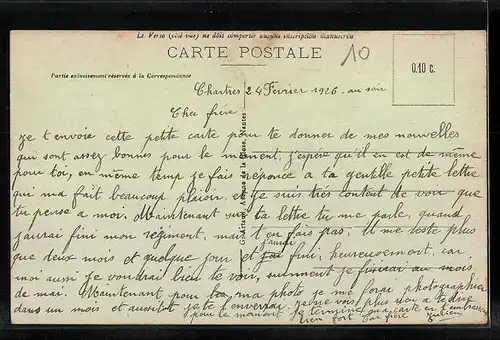 Le Verso (côté vue) ne doit comporter aucune inscription Manuscrite
CARTE POSTALE
10
0.10 c.
Partie exclusivement réservée à la Correspondance
Chartres 24 Février 1926 au soir
Cher frère
je t'envoie cette petite carte pour te donner de mes nouvelles
qui sont assez bonnes pour le moment, j'espère qu'il en est de même
pour toi, en même temp je fais reponce a ta gentille petite lettre
qui ma fait beaucoup plaisir, et je suis très content de voir que
tu pense a moi. Maintenant sur ta lettre tu me parle, quand
j'aurai fini mon régiment, mais t'en fais pas, il me reste plus
que deux mois et quelque jour et j'aurai fini, heureusement, car
moi aussi je voudrai bien te voir, surement je au mois
de mai. Maintenant pour ma photo je me ferai photographier
dans un mois et aussitot je te l'enverrai. je ne vois plus rien a te dire
pour le moment je termine ma carte en t'embrassant
bien fort ton frère Julien
Nantes